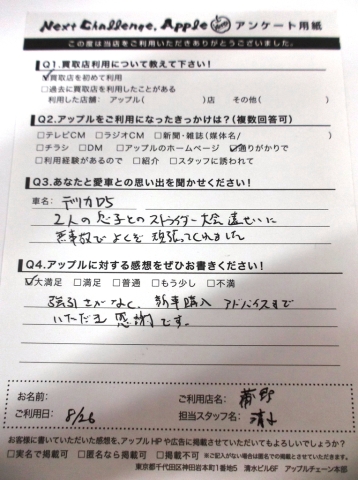 Next Challenge, Apple アンケート用紙
この度は当店をご利用いただきありがとうございました。
Q1.買取店利用について教えて下さい!
☑買取店を初めて利用
□過去に買取店を利用したことがある
利用した店舗: アップル( )店 その他( )
Q2.アップルをご利用になったきっかけは?(複数回答可)
□テレビCM □ラジオCM □新聞・雑誌(媒体名/ )
□チラシ □DM □アップルのホームページ ☑通りがかりで
□利用経験があるので □紹介 □スタッフに誘われて
Q3.あなたと愛車との思い出を聞かせください!
車名: デリカD5
2人の息子とのストライダー大会
無事故でよくぞ頑張ってくれました
Q4.アップルに対する感想をぜひお書きください!
☑大満足 □満足 □普通 □もう少し □不満
強引さがなく、新車購入アドバイスまで
いただき感謝です。
お名前: ご利用店名:
ご利用日: 8/26 担当スタッフ名: 清水
お客様に書いていただいた感想を、アップルHPや広告に掲載させていただいてもよろしいでしょうか?
□実名で掲載可 □匿名なら掲載可 □掲載不可 ※ご記入がない場合は匿名での掲載とさせていただきます。
東京都千代田区神田岩本町1番地5 清水ビル6F アップルチェーン本部